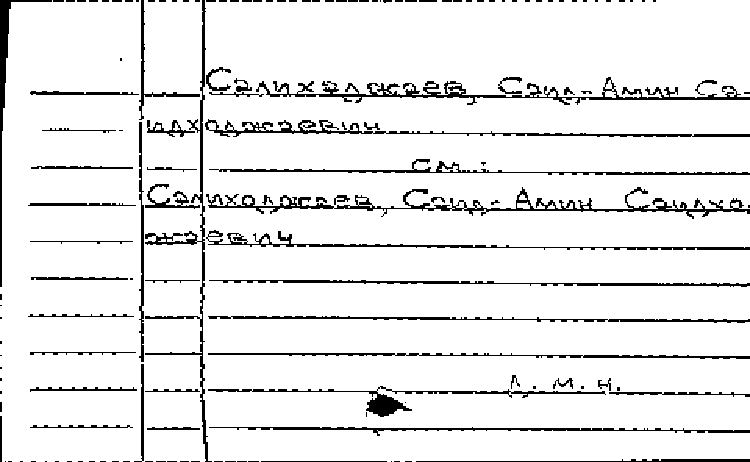 Салихаджаев, Саид-Амин Са-
идхаджаевич
см.:
Салиходжаев, Саид-Амин Саидхо
жаевич
д. м. н.